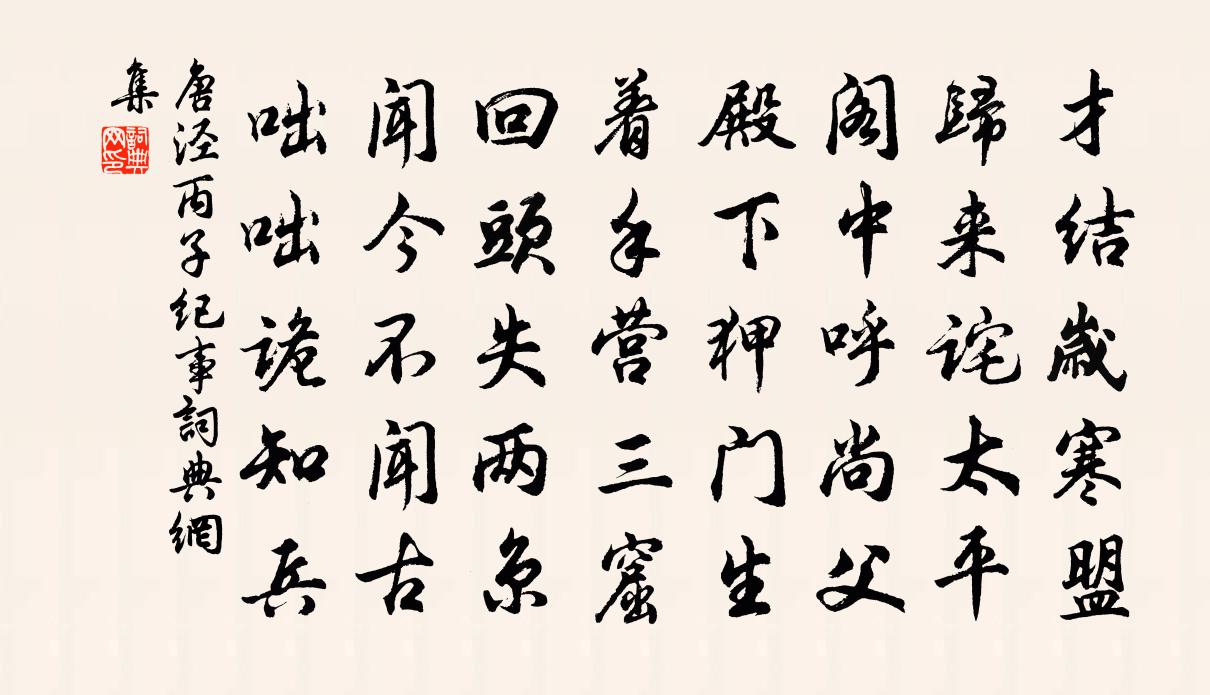 才结歳寒盟
歸来诧太平
阁中呼尚父
殿下狎门生
着手营三窟
回頭失两京
闻今不闻古
咄咄詭知兵
唐泾丙子纪事詞典網
集
詞典网印